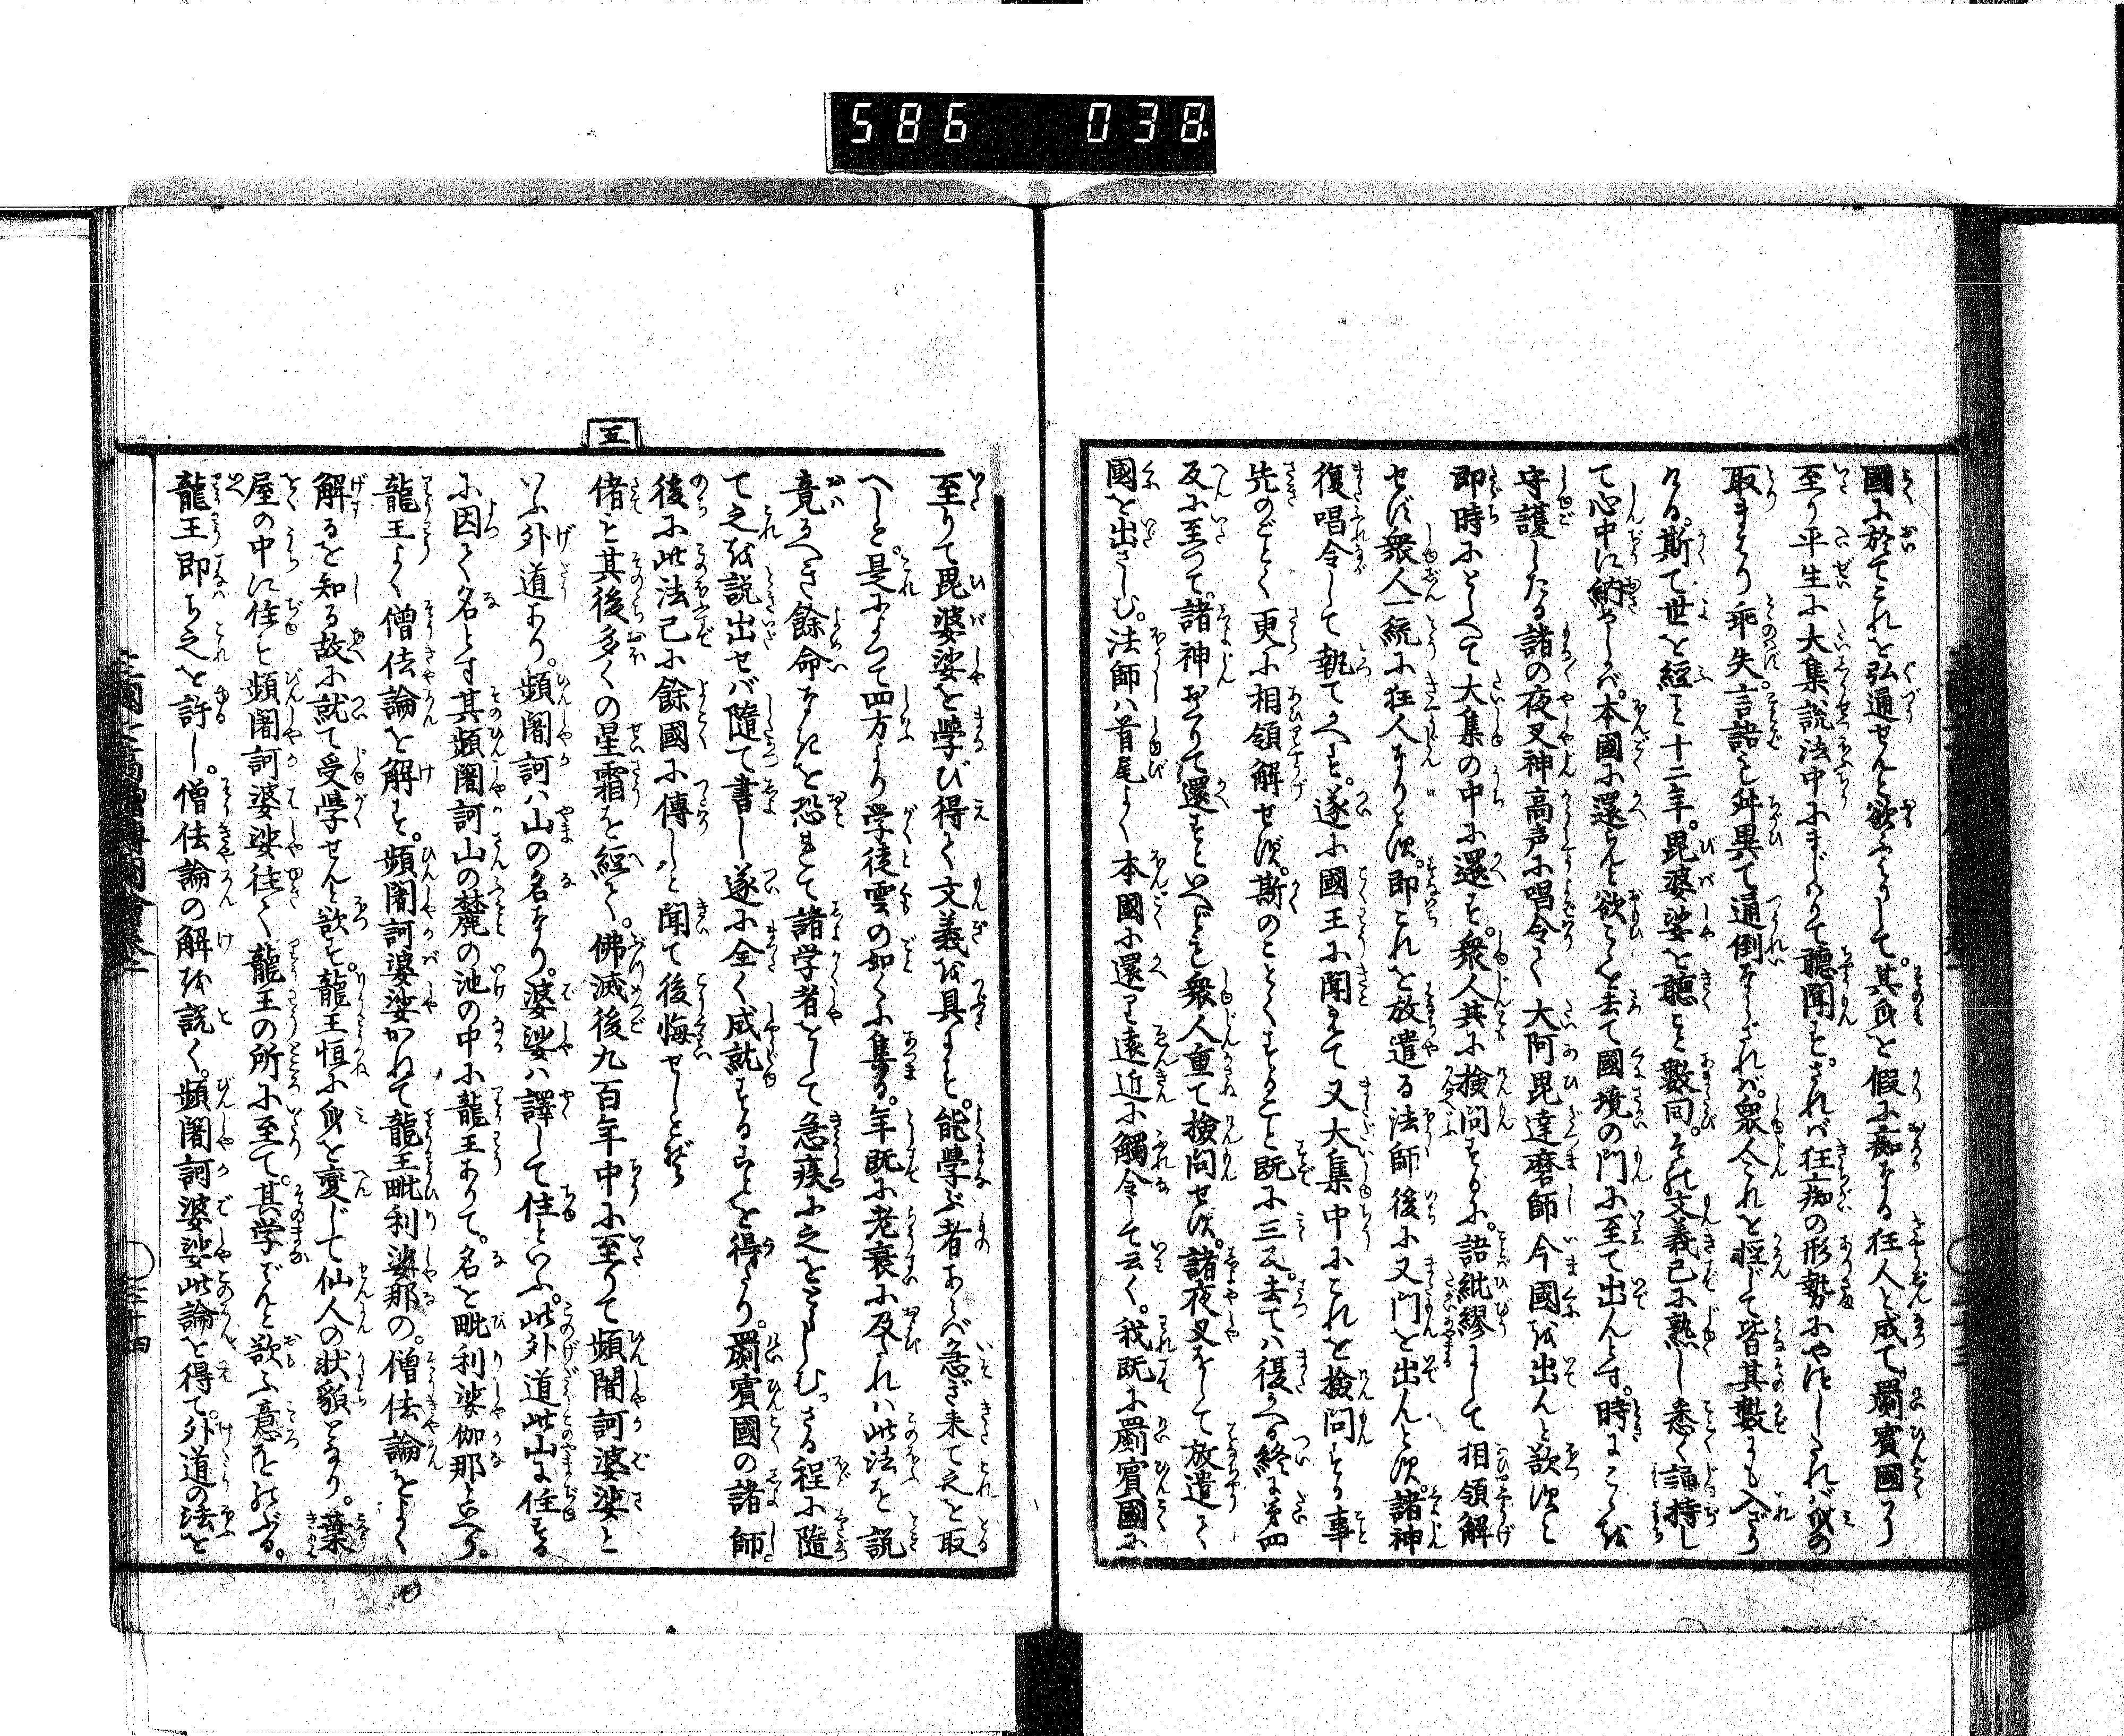 586 038
國に於てこれを弘通せんと欲ふりして。其身を假に痴なる狂人と成て。罽賓國にり
至り平生に大集説法中にまじりて聽聞す。されバ狂痴の形勢にやつしたれバ、威の
取まはり乖失。言語も舛異て通倒ならざれバ。衆人これを軽じて皆其數にも入ざり
ける。斯て世を經こと十二年。毘婆娑を聽こと數回。その文義已に熟し悉く誦持し
て心中に納めしかバ。本國に還らんと欲ここを去て國境の門に至て出んとす。時にこゝを
守護したる諸の夜叉神高声に唱令く大阿毘達磨師今國を出んと欲すと
即時にとらへて大集の中に還す。衆人共に撿問するに。語紕繆にして相領解
せず衆人一統に狂人なりとす。即これを放遣る法師後に又門を出んとす。諸神
復唱令して執てかへす。遂に國王に聞えて又大集中にこれを撿問する事
先のごとく更に相領解せず。斯のことくすること既に三反。去てハ復かへる終に第四
反に至つて。諸神おくりて還すといへども衆人重て撿問せず。諸夜叉をして放遣て
國を出さしむ。法師ハ首尾よく本國に還て遠近に觸令して云く。我既に罽賓國に
五
至りて毘婆娑を學び得て文義を具すと。能學ぶ者あらバ急ぎ来て之を取
へしと。是によつて四方より学徒雲の如くに集る。年既に老衰に及たれハ此法を説
竟るへき餘命なきを恐れて諸学者をして急疾に之をとらしむ。さる程に隨
て之を説出せバ隨て書し遂に全く成就することを得たり。罽賓國の諸師
後に此法已に餘國に傳しと聞て後悔せしとぞ
偖も其後多くの星霜を經て。佛滅後九百年中に至りて頻闍訶婆娑と
いふ外道あり。頻闍訶ハ山の名なり。婆娑ハ譯して住といふ。此外道此山に住する
に因て名とす其頻闍訶山の麓の池の中に龍王ありて。名を毗利娑伽那と云り。
龍王よく僧佉論を解す。頻闍訶婆娑かねて龍王毗利婆那の。僧佉論をよく
解るを知る故に就て受學せんと欲す。龍王恒に身を變じて仙人の状貌となり。葉
屋の中に住と頻闍訶婆娑往て龍王の所に至て。其学でんと欲ふ意をのぶる。
龍王即ち之を許し。僧佉論の解を説く。頻闍訶婆娑此論を得て。外道の法を
三國七高僧傳圖會
三十四